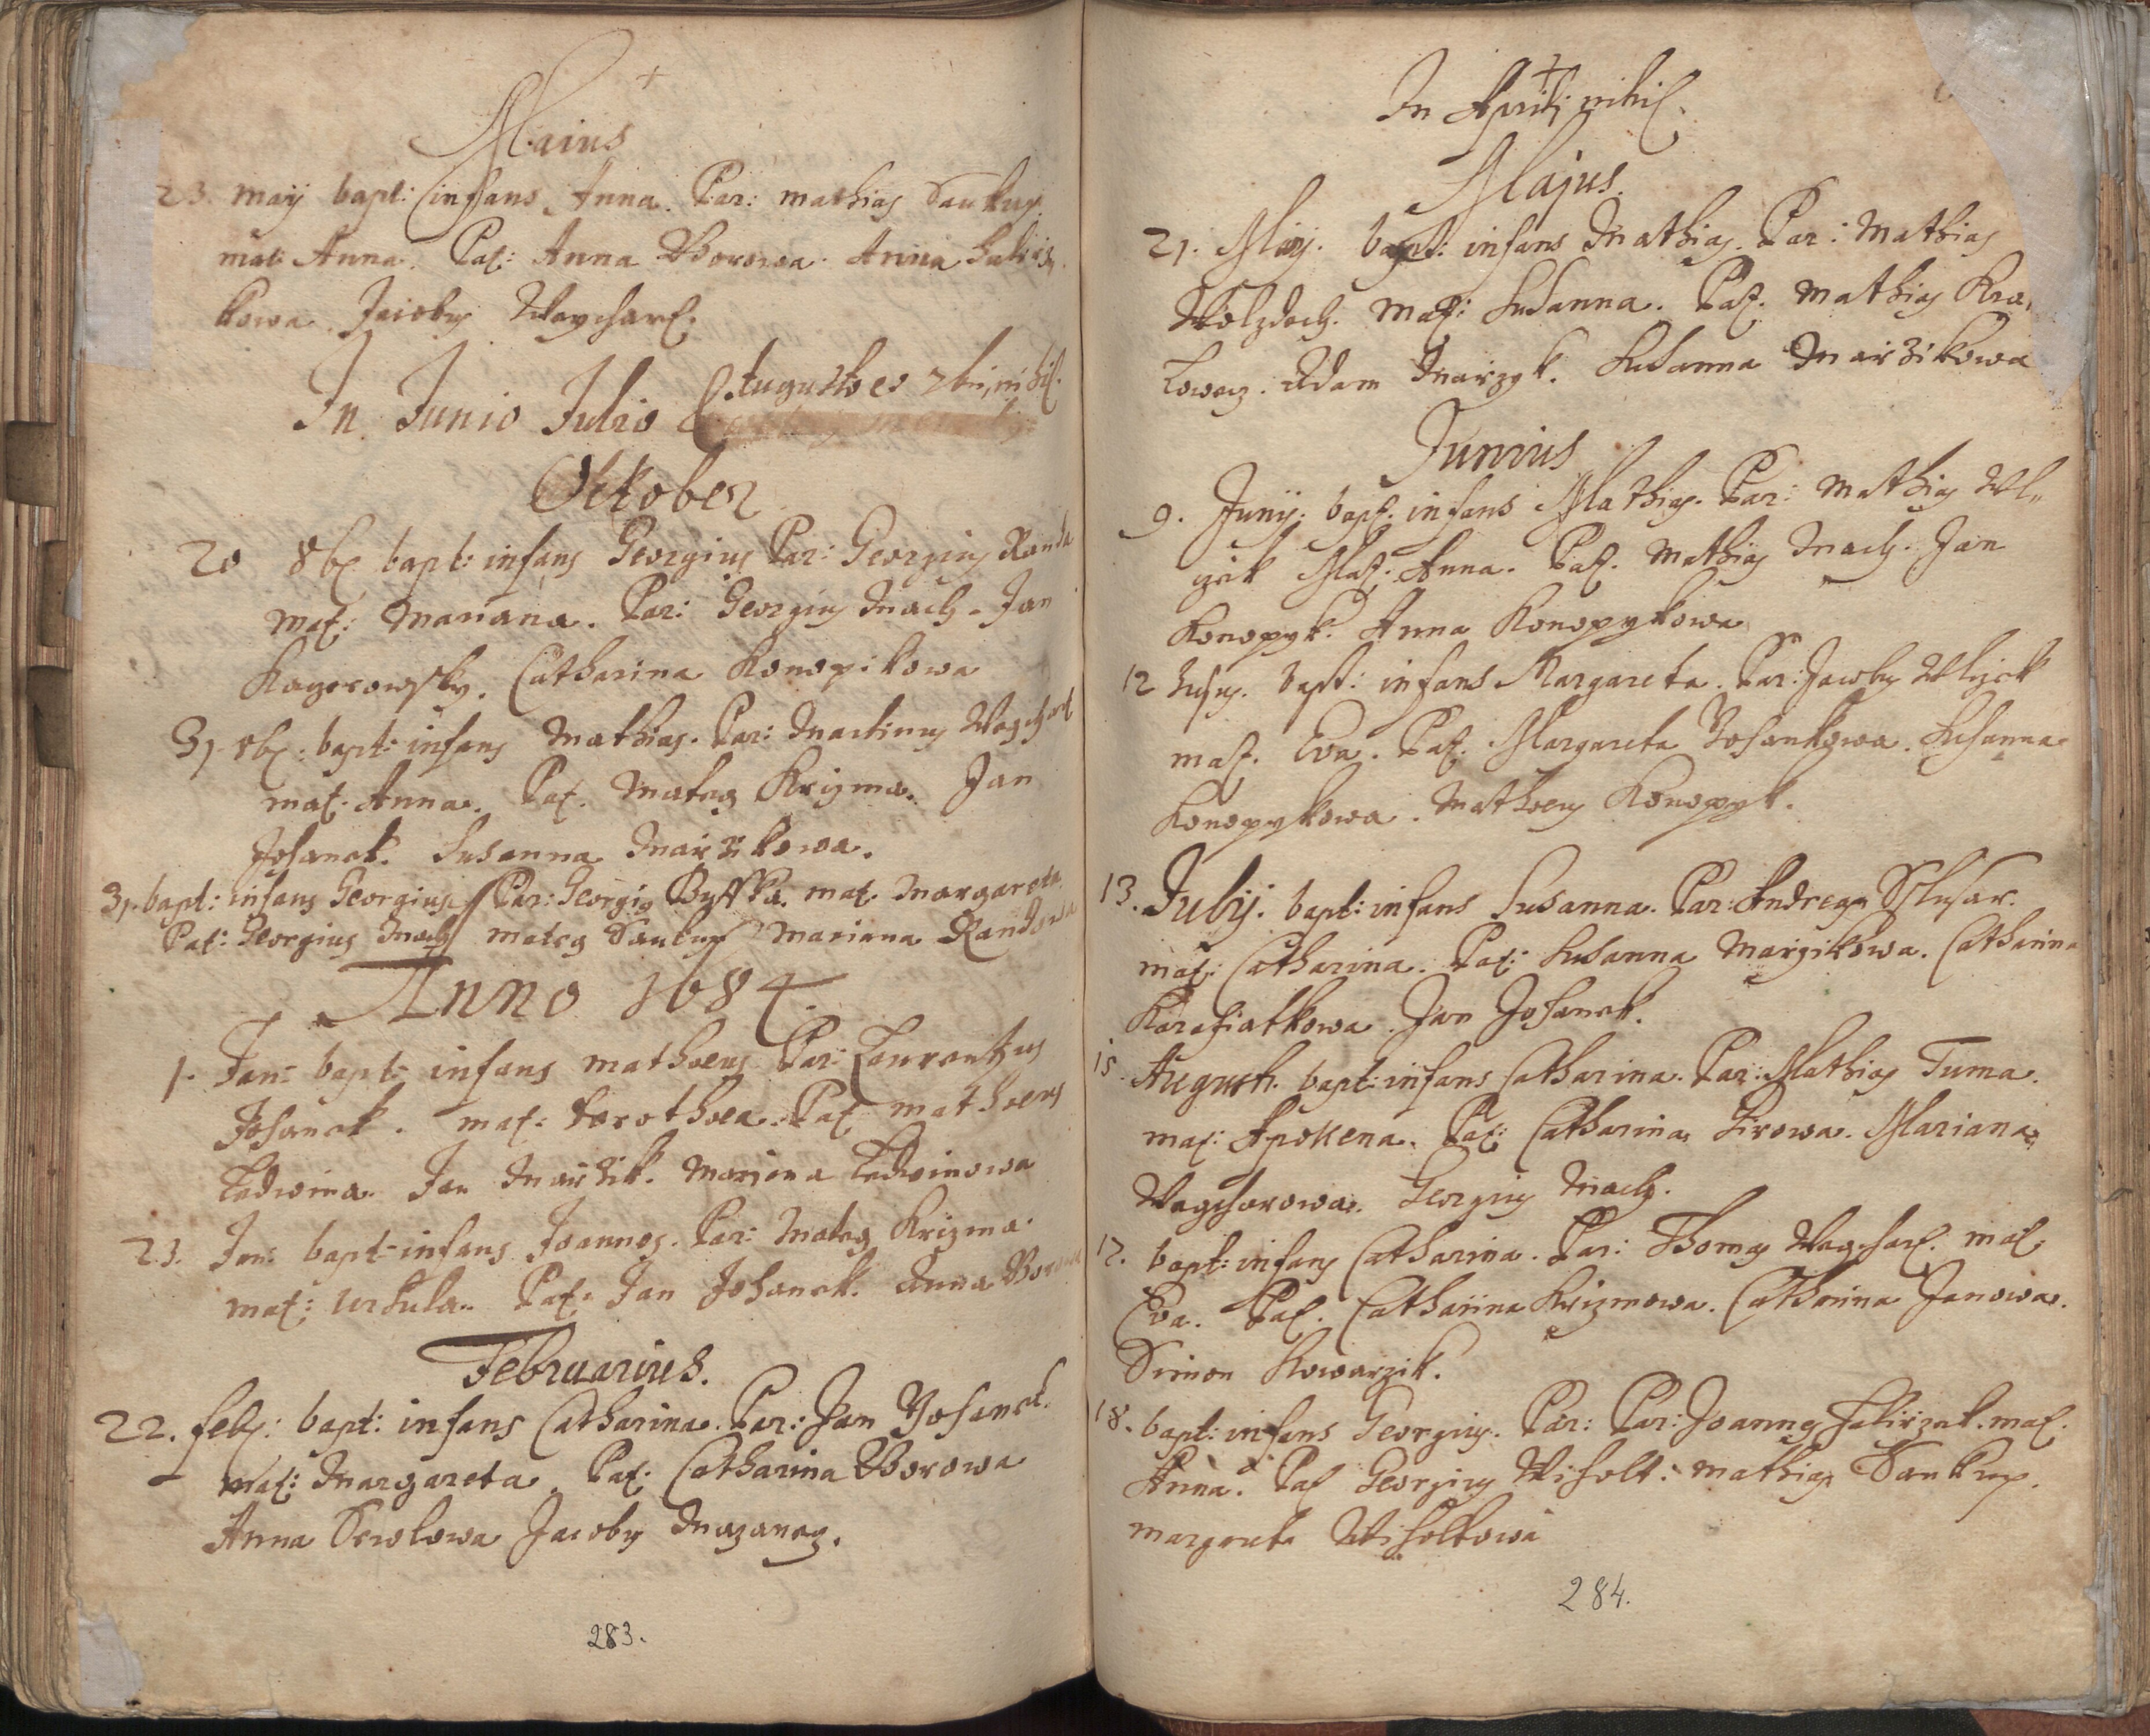 Maius
23. maij bapt: infans Anna. Par: mathias Saukup.
mat: Anna. Pat: Anna Worowa. Anna
kowa. Jacobus Waychart.
In Junio Julio Augusto et 7bri nihil.
October
20 8br bapt: infans Georgius Par: Georgius Randa
mat: Mariana. Par: Georgius Mach. Jan
Kayerowsky. Catharina Konopikowa
31. 8br: bapt: infans Mathias. Par: Martinus Waychart
mat. Anna. Pat. Mateg Krizma. Jan
Johanek. Susanna Marzikowa.
31. bapt: infans Georgius Par: Georgig Byffka. mat. Margareta.
Pat: Georgius Mach mateg Saukup Mariana Randowa
Anno 1684.
1. Jan: bapt: infans mathoeus Par: Laurentius
Johanek. mat: dorothoea. Pat: mathoeus
Ledwina. Jan Marzik. Marjana Ledwinowa
23. Jan: bapt: infans Joannes. Par: Mateg Krizma.
mat: Ursula. Pat. Jan Johanek. Anna
Februarius.
22. feb: bapt: infans Catharina. Par: Jan Johanek.
mat: Margareta. Pat. Catharina Worowa
Anna Sewlowa Jacobus Mazaneg.
283.
In Aprili nihil.
Majus.
21. Maij. bapt: infans Mathias. Par: Mathias
Wolzdoch. Mat: Susanna. Pat. Mathias Kra,
Lowez. Adam Marzyk. Susanna Marzikowa
Junius
9. Junij. bapt. infans Mathias. Par: Mathias Wl,,
yek Mat: Anna. Pat. Mathias Mach. Jan
Konopyk. Anna Konopykowa
12 bapt: infans Margareta. Par: Jacobus Wlyek
mat. Eva. Pat. Margareta Johankowa. Susanna
Konopykowa. Mathoeus Konopyk.
13. Julij. bapt: infans Susanna. Par: Andreas Sslusar.
mat: Catharina. Pat: Susanna Marzikowa. Catharina
Karafiatkowa. Jan Johanek.
15. Augusti. bapt: infans Catharina. Par: Mathias Tuma.
mat: Apolena. Pat: Catharina Sirowa. Mariana
Waycharowa. Georgius Mach.
17. bapt: infans Catharina. Par: Thomas Waychart. mat.
Eva. Pat. Catharina Krizmowa. Catharina Janowa.
Simon Kowarzik.
18. bapt: infans Georgius. Par: Par: Joannes mat.
Anna. Pat Georgius Wiholt: mathias Saukup.
margareta Wiholtowa
284.